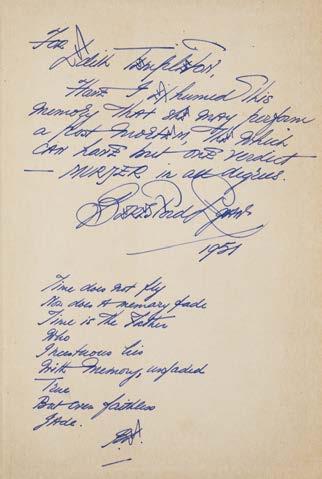 For
Edith Templeton,
Have I exhumed this
memory that she may perform
a post mortem, the which
can have but one verdict
— MURDER in all degrees.
1951
Time does not fly
Nor does a memory fade
Time is the Father
Who
Incestuous lies
With Memory, unfaded
True
But ever faithless
Jade.